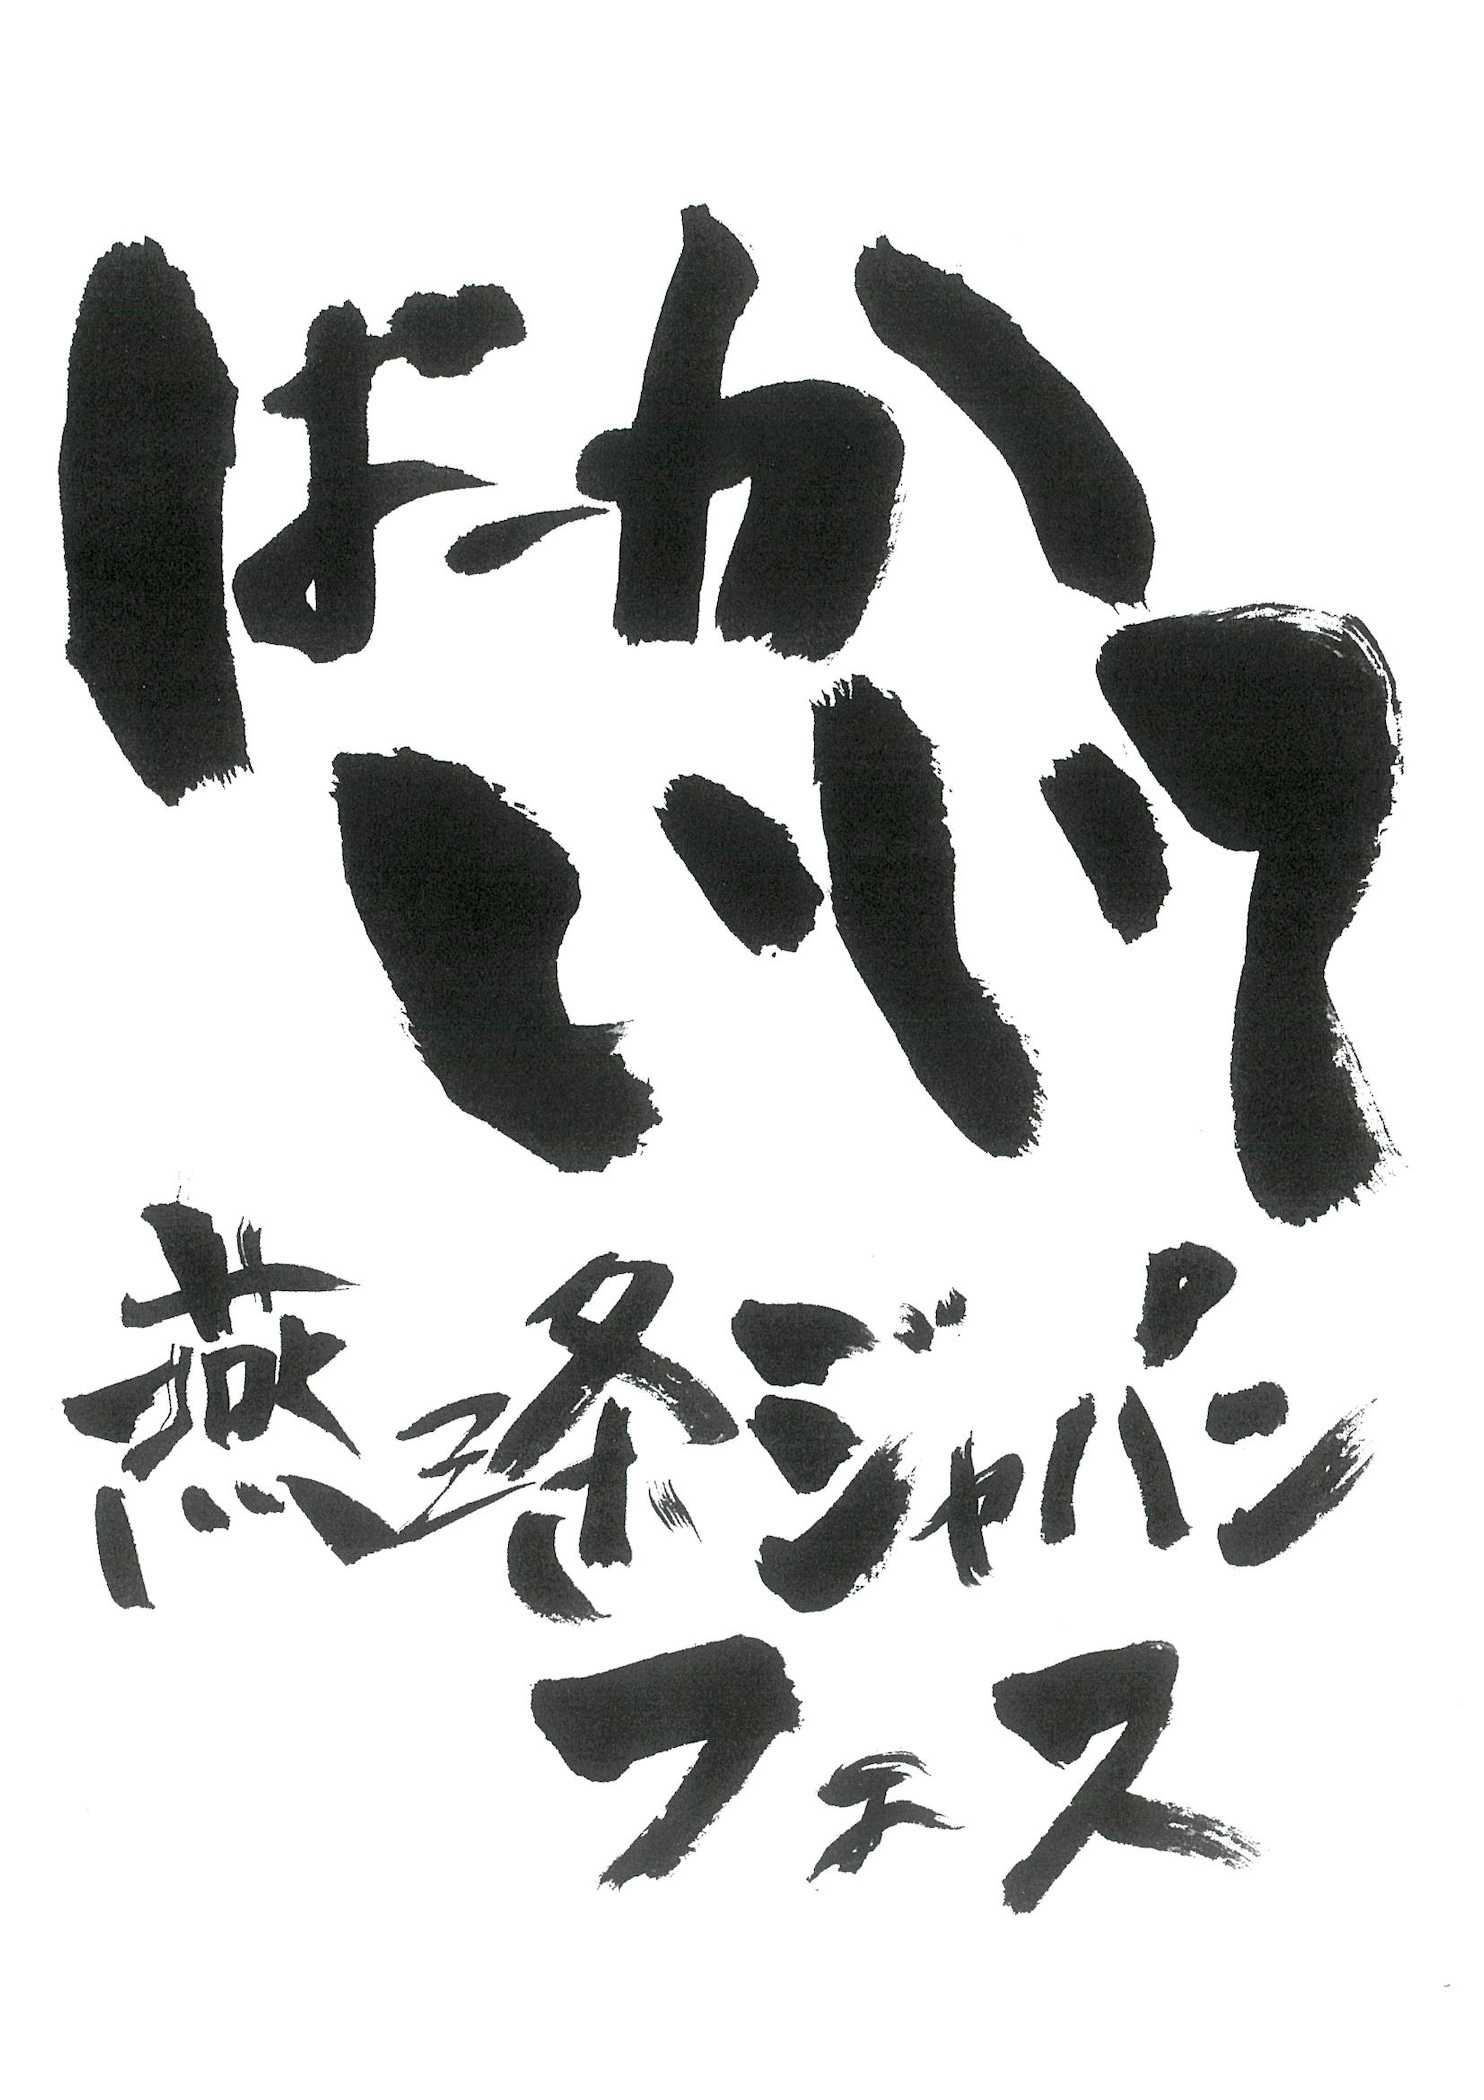 ばか
いい
燕三条ジャパン
フェス